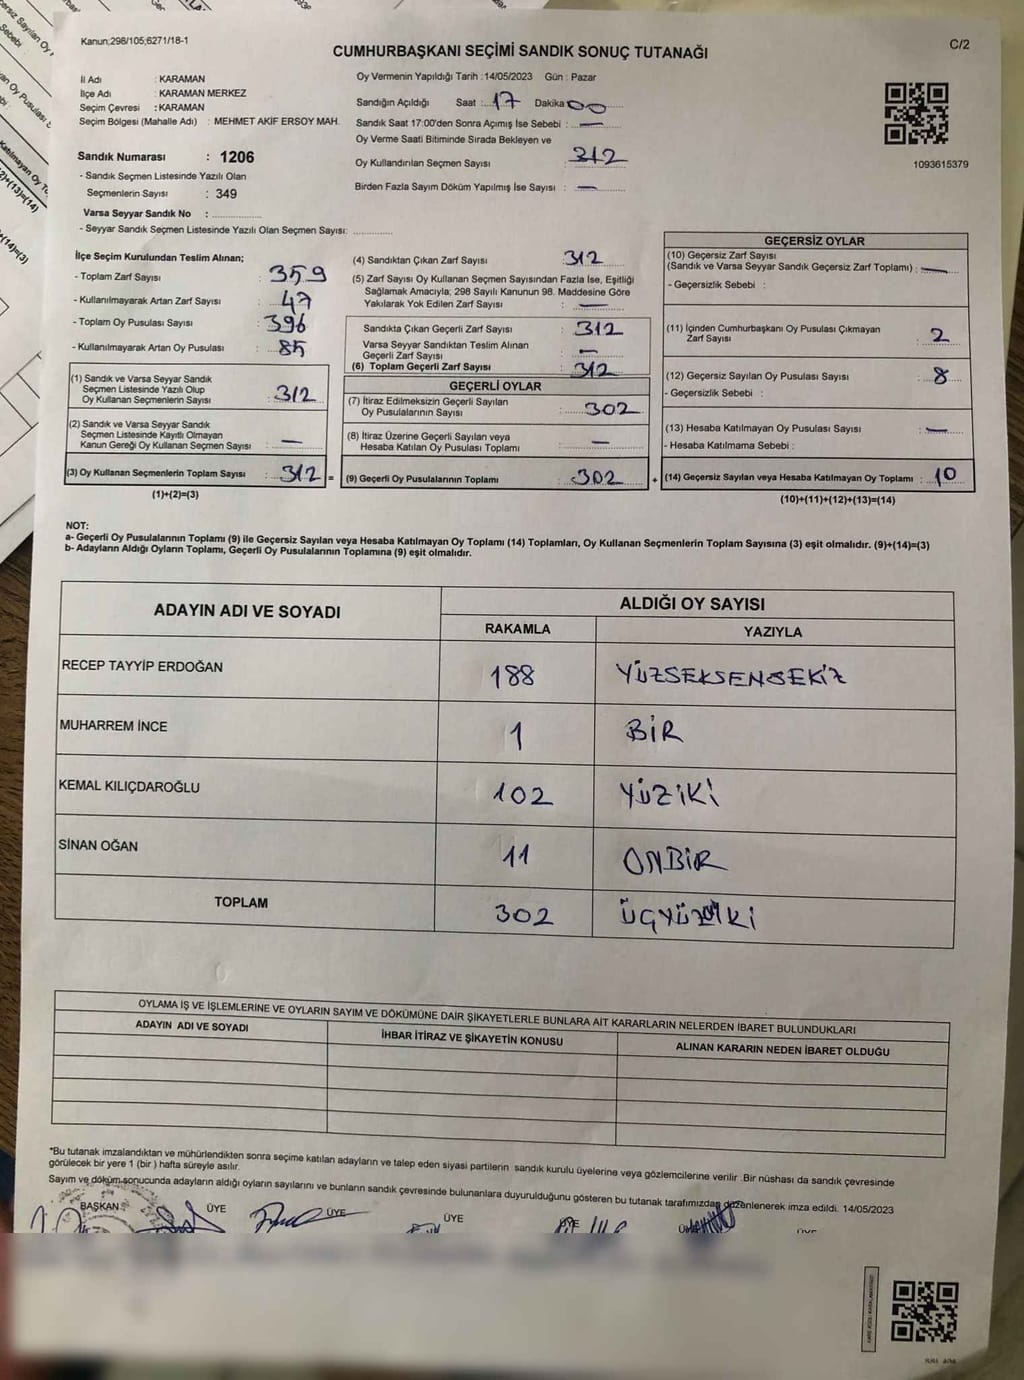 Kanun;298/105;6271/18-1
C/2
CUMHURBAŞKANI SEÇİMİ SANDIK SONUÇ TUTANAĞI
İl Adı : KARAMAN
İlçe Adı : KARAMAN MERKEZ
Seçim Çevresi : KARAMAN
Seçim Bölgesi (Mahalle Adı) : MEHMET AKİF ERSOY MAH.
Sandık Numarası : 1206
- Sandık Seçmen Listesinde Yazılı Olan
Seçmenlerin Sayısı : 349
Varsa Seyyar Sandık No :
- Seyyar Sandık Seçmen Listesinde Yazılı Olan Seçmen Sayısı:
Oy Vermenin Yapıldığı Tarih :14/05/2023 Gün : Pazar
Sandığın Açıldığı Saat : 17 Dakika 00
Sandık Saat 17:00'den Sonra Açımış İse Sebebi : —
Oy Verme Saati Bitiminde Sırada Bekleyen ve
Oy Kullandırılan Seçmen Sayısı : 312
Birden Fazla Sayım Döküm Yapılmış İse Sayısı : —
1093615379
İlçe Seçim Kurulundan Teslim Alınan;
- Toplam Zarf Sayısı : 359
- Kullanılmayarak Artan Zarf Sayısı : 47
- Toplam Oy Pusulası Sayısı : 396
- Kullanılmayarak Artan Oy Pusulası : 85
(1) Sandık ve Varsa Seyyar Sandık
Seçmen Listesinde Yazılı Olup
Oy Kullanan Seçmenlerin Sayısı : 312
(2) Sandık ve Varsa Seyyar Sandık
Seçmen Listesinde Kayıtlı Olmayan
Kanun Gereği Oy Kullanan Seçmen Sayısı : —
(3) Oy Kullanan Seçmenlerin Toplam Sayısı : 312 =
(1)+(2)=(3)
(4) Sandıktan Çıkan Zarf Sayısı : 312
(5) Zarf Sayısı Oy Kullanan Seçmen Sayısından Fazla İse, Eşitliği
Sağlamak Amacıyla; 298 Sayılı Kanunun 98. Maddesine Göre
Yakılarak Yok Edilen Zarf Sayısı : —
Sandıkta Çıkan Geçerli Zarf Sayısı : 312
Varsa Seyyar Sandıktan Teslim Alınan
Geçerli Zarf Sayısı : —
(6) Toplam Geçerli Zarf Sayısı : 312
GEÇERLİ OYLAR
(7) İtiraz Edilmeksizin Geçerli Sayılan
Oy Pusulalarının Sayısı : 302
(8) İtiraz Üzerine Geçerli Sayılan veya
Hesaba Katılan Oy Pusulası Toplamı : —
(9) Geçerli Oy Pusulalarının Toplamı : 302 +
GEÇERSİZ OYLAR
(10) Geçersiz Zarf Sayısı
(Sandık ve Varsa Seyyar Sandık Geçersiz Zarf Toplamı) : —
- Geçersizlik Sebebi :
(11) İçinden Cumhurbaşkanı Oy Pusulası Çıkmayan
Zarf Sayısı : 2
(12) Geçersiz Sayılan Oy Pusulası Sayısı : 8
- Geçersizlik Sebebi :
(13) Hesaba Katılmayan Oy Pusulası Sayısı : —
- Hesaba Katılmama Sebebi :
(14) Geçersiz Sayılan veya Hesaba Katılmayan Oy Toplamı : 10
(10)+(11)+(12)+(13)=(14)
NOT:
a- Geçerli Oy Pusulalarının Toplamı (9) ile Geçersiz Sayılan veya Hesaba Katılmayan Oy Toplamı (14) Toplamları, Oy Kullanan Seçmenlerin Toplam Sayısına (3) eşit olmalıdır. (9)+(14)=(3)
b- Adayların Aldığı Oyların Toplamı, Geçerli Oy Pusulalarının Toplamına (9) eşit olmalıdır.
ADAYIN ADI VE SOYADI ALDIĞI OY SAYISI
RAKAMLA YAZIYLA
RECEP TAYYİP ERDOĞAN 188 YÜZSEKSENSEKİZ
MUHARREM İNCE 1 BİR
KEMAL KILIÇDAROĞLU 102 YÜZİKİ
SİNAN OĞAN 11 ONBİR
TOPLAM 302 ÜÇYÜZİKİ
OYLAMA İŞ VE İŞLEMLERİNE VE OYLARIN SAYIM VE DÖKÜMÜNE DAİR ŞİKAYETLERLE BUNLARA AİT KARARLARIN NELERDEN İBARET BULUNDUKLARI
ADAYIN ADI VE SOYADI İHBAR İTİRAZ VE ŞİKAYETİN KONUSU ALINAN KARARIN NEDEN İBARET OLDUĞU
*Bu tutanak imzalandıktan ve mühürlendikten sonra seçime katılan adayların ve talep eden siyasi partilerin sandık kurulu üyelerine veya gözlemcilerine verilir .Bir nüshası da sandık çevresinde
görülecek bir yere 1 (bir ) hafta süreyle asılır.
Sayım ve döküm sonucunda adayların aldığı oyların sayılarını ve bunların sandık çevresinde bulunanlara duyurulduğunu gösteren bu tutanak tarafımızdan düzenlenerek imza edildi. 14/05/2023
BAŞKAN ÜYE ÜYE ÜYE ÜYE ÜYE ÜYE